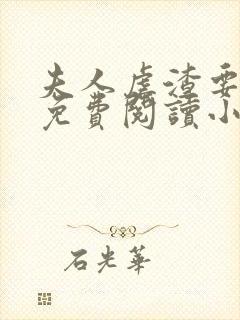 夫人虐渣要
免費閱讀小
石光華